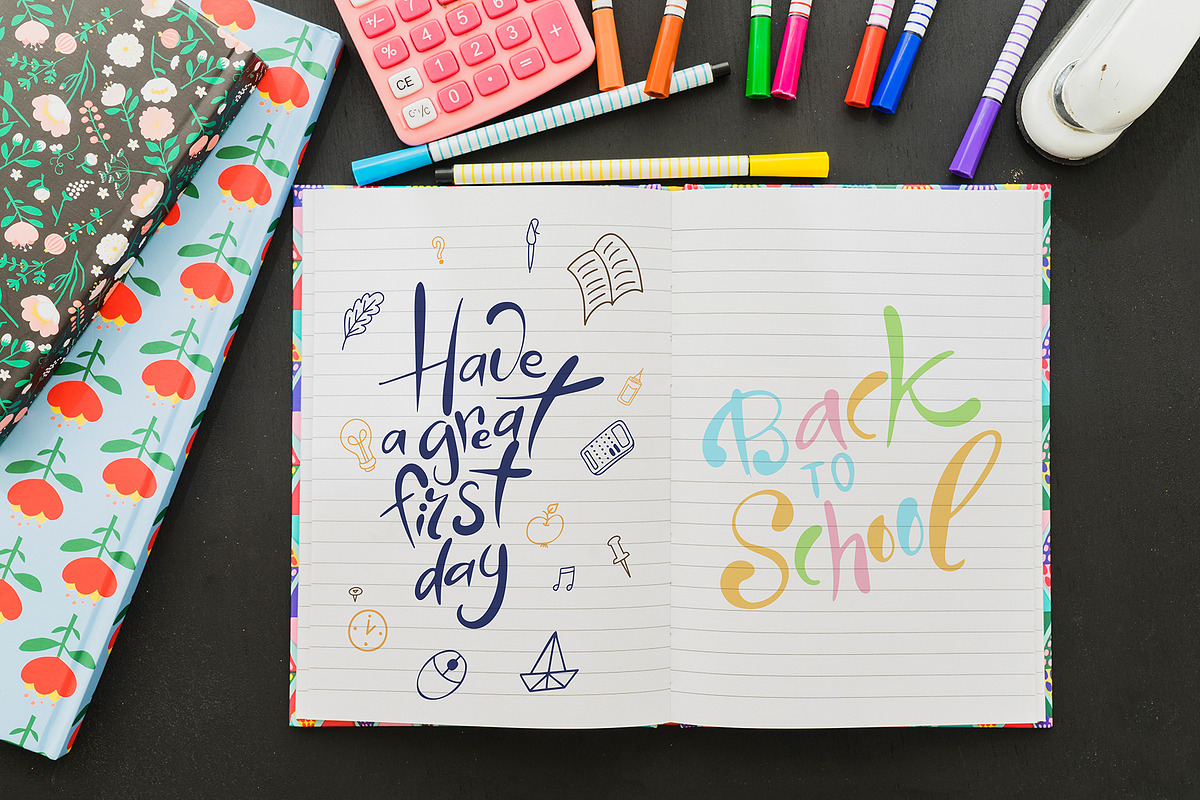 +/-
7
5
6
%
4
2
3
+
CE
1
.
=
C·/C
0
?
Have
a great
first
day
Back
TO
School